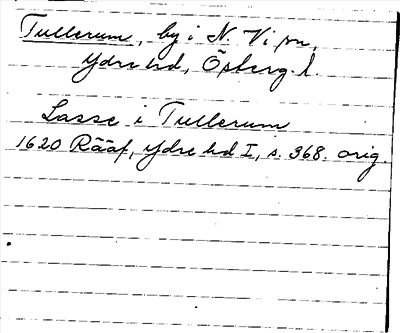 Tullerum, by i N. Vi sn,
Ydre hd, Österg. l.
Lasse i Tullerum
1620 Rääf, Ydre hd I, s. 368. orig.